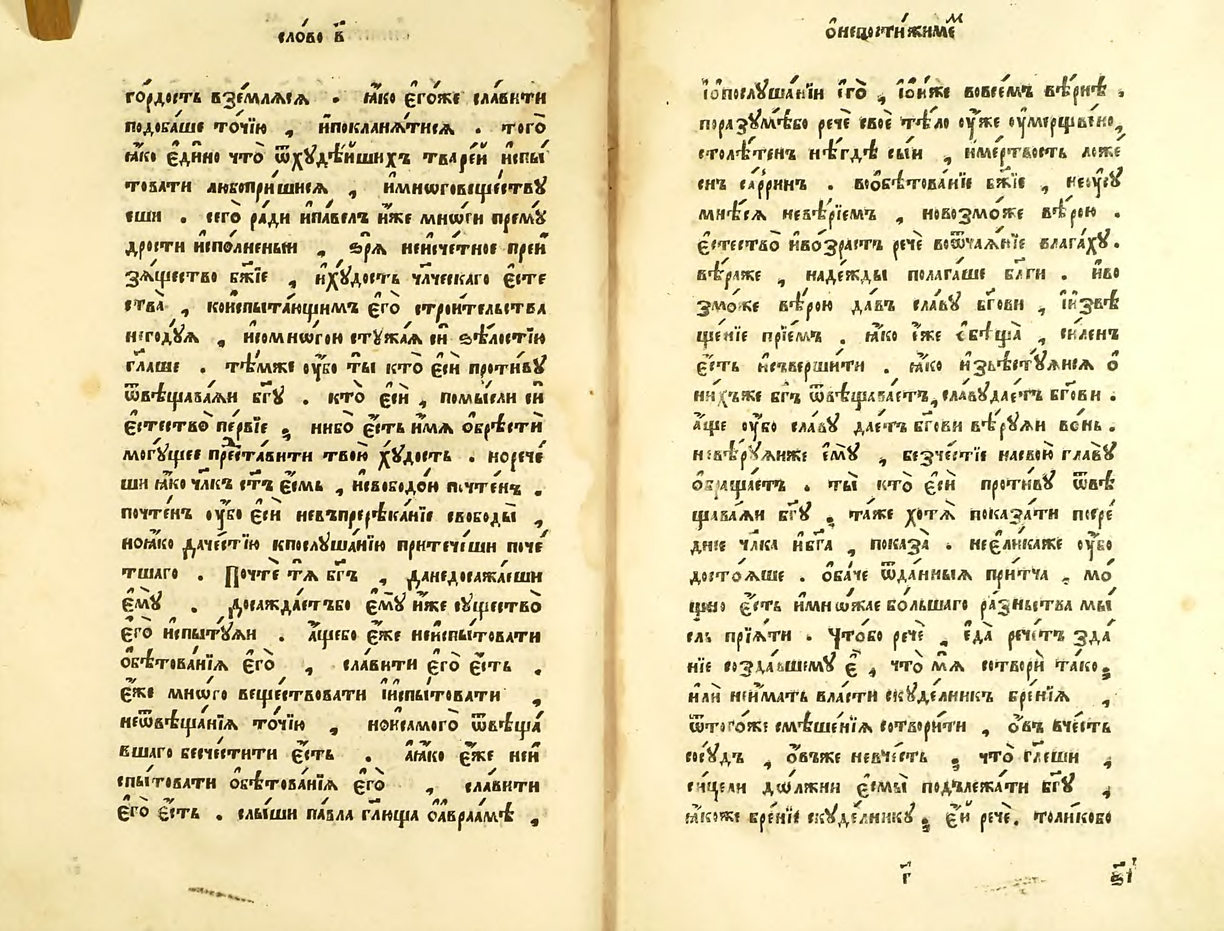 сло́во в҃
го́рдость взе́млѧсѧ . ꙗ҆́ко є҆го́же сла́вити
подоба́ше то́чїю , и҆покланѧ́тисѧ . того̀
ꙗ҆́ко є҆ди́но что̀ ѿхꙋдѣ́йшихъ тваре́й и҆спы́
товати любопри́шисѧ , и҆мно́говеществꙋ
еши . сего̀ ра́ди и҆па́велъ и҆́же мно́ги премꙋ́
дрости и҆спо́лненый , зрѧ̀ неисче́тное преи҆
зѧ́щество бж҃їе , и҆хꙋ́дость чл҃ческаго є҆сте
ства̀ , кои҆спыта́ющимъ є҆го̀ строи́телства
негодꙋ́ѧ , и҆сомно́гою стꙋжа́ѧ си ѕѣ́лостїю
гл҃аше . тѣ́мже ᲂу҆́бо ты̀ кто̀ є҆сѝ проти́вꙋ
ѿвѣщава́ѧи бг҃ꙋ . кто̀ є҆сѝ , помы́сли си
є҆стество̀ пе́рвїе , нибо̀ є҆́сть и҆́мѧ ѡ҆брѣстѝ
могꙋ́щее предста́вити твою̀ хꙋ́дость . норече́
ши ꙗ҆́ко чл҃къ є҆́смь , и҆свобо́дою почте́нъ .
почте́нъ ᲂу҆́бо є҆сѝ невъпререка́нїе свобо́ды ,
ноꙗ҆́ко даче́стїю кпослꙋша́нїю притече́ши поче́
тшаго . Почте́ тѧ бг҃ъ , данедосажа́еши
є҆мꙋ̀ . досажда́етъбо є҆мꙋ̀ и҆́же сꙋщество̀
є҆го̀ и҆спытꙋ́ѧи . а҆́щебо є҆́же неи҆спы́товати
ѡ҆бѣтова́нїѧ є҆го̀ , сла́вити є҆го̀ є҆́сть .
є҆́же мно́го веществовати и҆и҆спы́товати ,
неѿвѣща́нїѧ то́чїю , нои҆самого̀ ѿвѣща́
вшаго бесче́стити є҆́сть . а҆ꙗ҆́ко є҆́же неи҆
спы́товати ѡ҆бѣтова́нїѧ є҆го̀ , сла́вити
є҆го̀ є҆́сть . слы́ши па́вла гл҃юща ѡ҆а҆враа́мѣ ,
ѡ҆непостижи́мѣм
и҆ѡ҆послꙋша́нїи є҆го̀ , и҆ѡ҆и҆́же вовсе́мъ вѣ́рнѣ .
поразꙋмѣ́бо речѐ своѐ тѣ́ло ᲂу҆жѐ ᲂу҆мерщвено̀,
столѣ́тенъ нѣ́гдѣ сы́и , и҆ме́ртвость ложе
снъ са́ррин . воѡ҆бѣтова́нїе бж҃їе , неᲂу҆сꙋ
мнѣ́сѧ невѣ́рїемъ , новозмо́же вѣ́рою .
є҆стество̀ и҆во́зрастъ речѐ воѿча́ѧнїе влага́хꙋ .
вѣ́раже , наде́жды полага́ше бл҃ги . и҆во
змо́же вѣ́рою да́въ сла́вꙋ бг҃ови , и҆и҆звѣ
ще́нїе прїе́мъ . ꙗ҆́ко є҆́же ѡ҆бѣща̀ , си́ленъ
є҆́сть и҆съверши́ти . ꙗ҆́ко и҆звѣстꙋ́ѧисѧ ѡ҆
ни́хъже бг҃ъ ѿвѣщава́етъ, сла́вꙋдае́тъ бг҃ови .
а҆́ще ᲂу҆́бо сла́вꙋ дае́тъ бг҃ови вѣ́рꙋѧи во́нь .
невѣ́рꙋѧиже є҆мꙋ̀ , безче́стїе насвою̀ главꙋ̀
ѡ҆браща́етъ . ты̀ кто̀ є҆сѝ проти́вꙋ ѿвѣ
щава́ѧи бг҃ꙋ , та́же хотѧ̀ показа́ти посре
ди́е чл҃ка и҆бг҃а , показа̀ . неели́каже ᲂу҆́бо
досто́ѧше . ѻ҆ба́че ѿда́нныѧ при́тча , мо́
щно є҆́сть и҆мно́жае бо́лшаго ра́знства мы́
сль прїѧ́ти . Что́бо речѐ , є҆да̀ рече́тъ зда́
нїе созда́вшемꙋ є҆̀ , что̀ мѧ̀ сотворѝ та́ко,
и҆лѝ неи҆́мать вла́сти скꙋде́лникъ бре́нїѧ ,
ѿтого́же смѣше́нїѧ сотвори́ти , ѻ҆́въ вче́сть
сосꙋ́дъ , ѻ҆́въже невче́сть , что̀ гл҃еши ,
си́цели до́лжни є҆смы̀ подъlежа́ти бг҃ꙋ ,
ꙗ҆́коже бре́нїе скꙋде́лникꙋ , є҆́й речѐ . толи́кобо
г҃
ѕ҃і